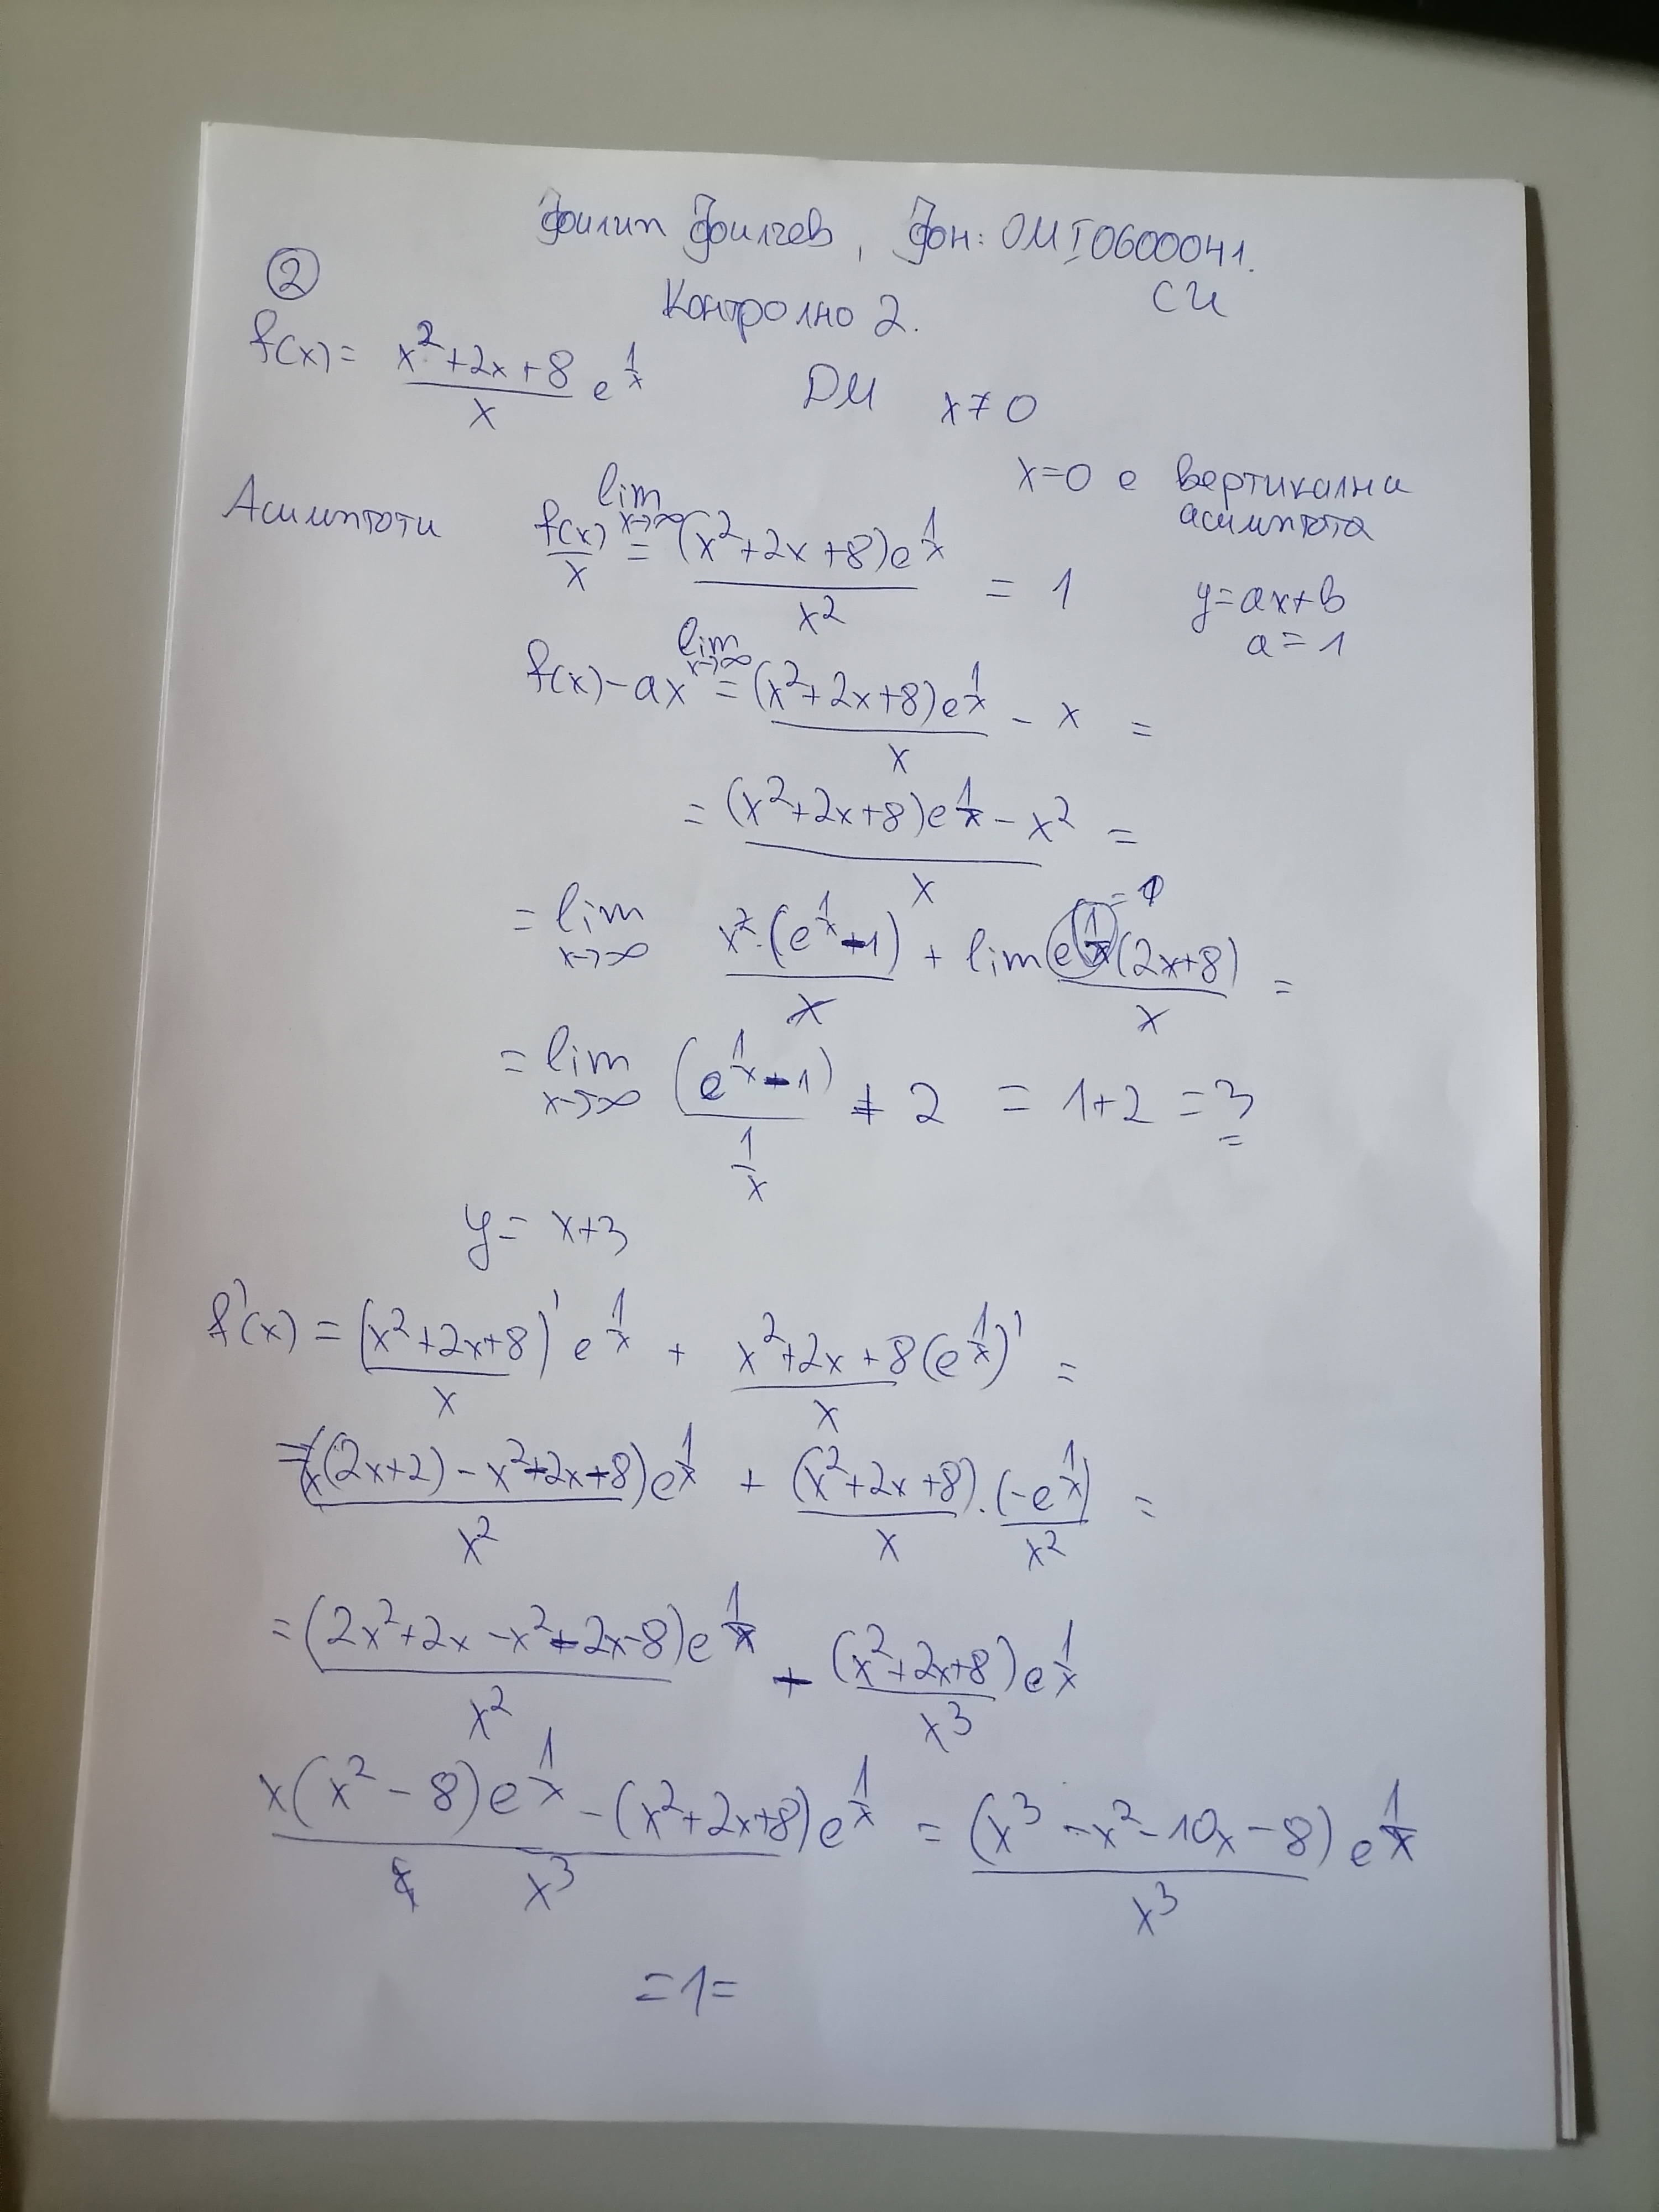 Филип Филчев, Фон: 0MI0600041.
②
Контролно 2. СИ
f(x) = (x²+2x+8)/x e^(1/x) ДМ x≠0
x=0 е вертикална асимптота
Асимптоти f(x)/x = lim x→∞ (x²+2x+8)e^(1/x) / x² = 1
y=ax+b
a=1
f(x)-ax = lim x→∞ (x²+2x+8)e^(1/x) / x - x =
= ((x²+2x+8)e^(1/x) - x²) / x =
= lim x→∞ x²·(e^(1/x) - 1) / x + lim e^(1/x) (2x+8) / x =
= lim x→∞ (e^(1/x) - 1) / (1/x) + 2 = 1+2 = 3
y = x+3
f'(x) = ((x²+2x+8)/x)' e^(1/x) + (x²+2x+8)/x (e^(1/x))' =
= (x(2x+2) - x²-2x-8)e^(1/x) / x² + (x²+2x+8)/x · (-e^(1/x))/x² =
= (2x²+2x-x²-2x-8)e^(1/x) / x² - (x²+2x+8)e^(1/x) / x³
(x(x²-8)e^(1/x) - (x²+2x+8)e^(1/x)) / x³ = (x³-x²-10x-8)e^(1/x) / x³
=1=